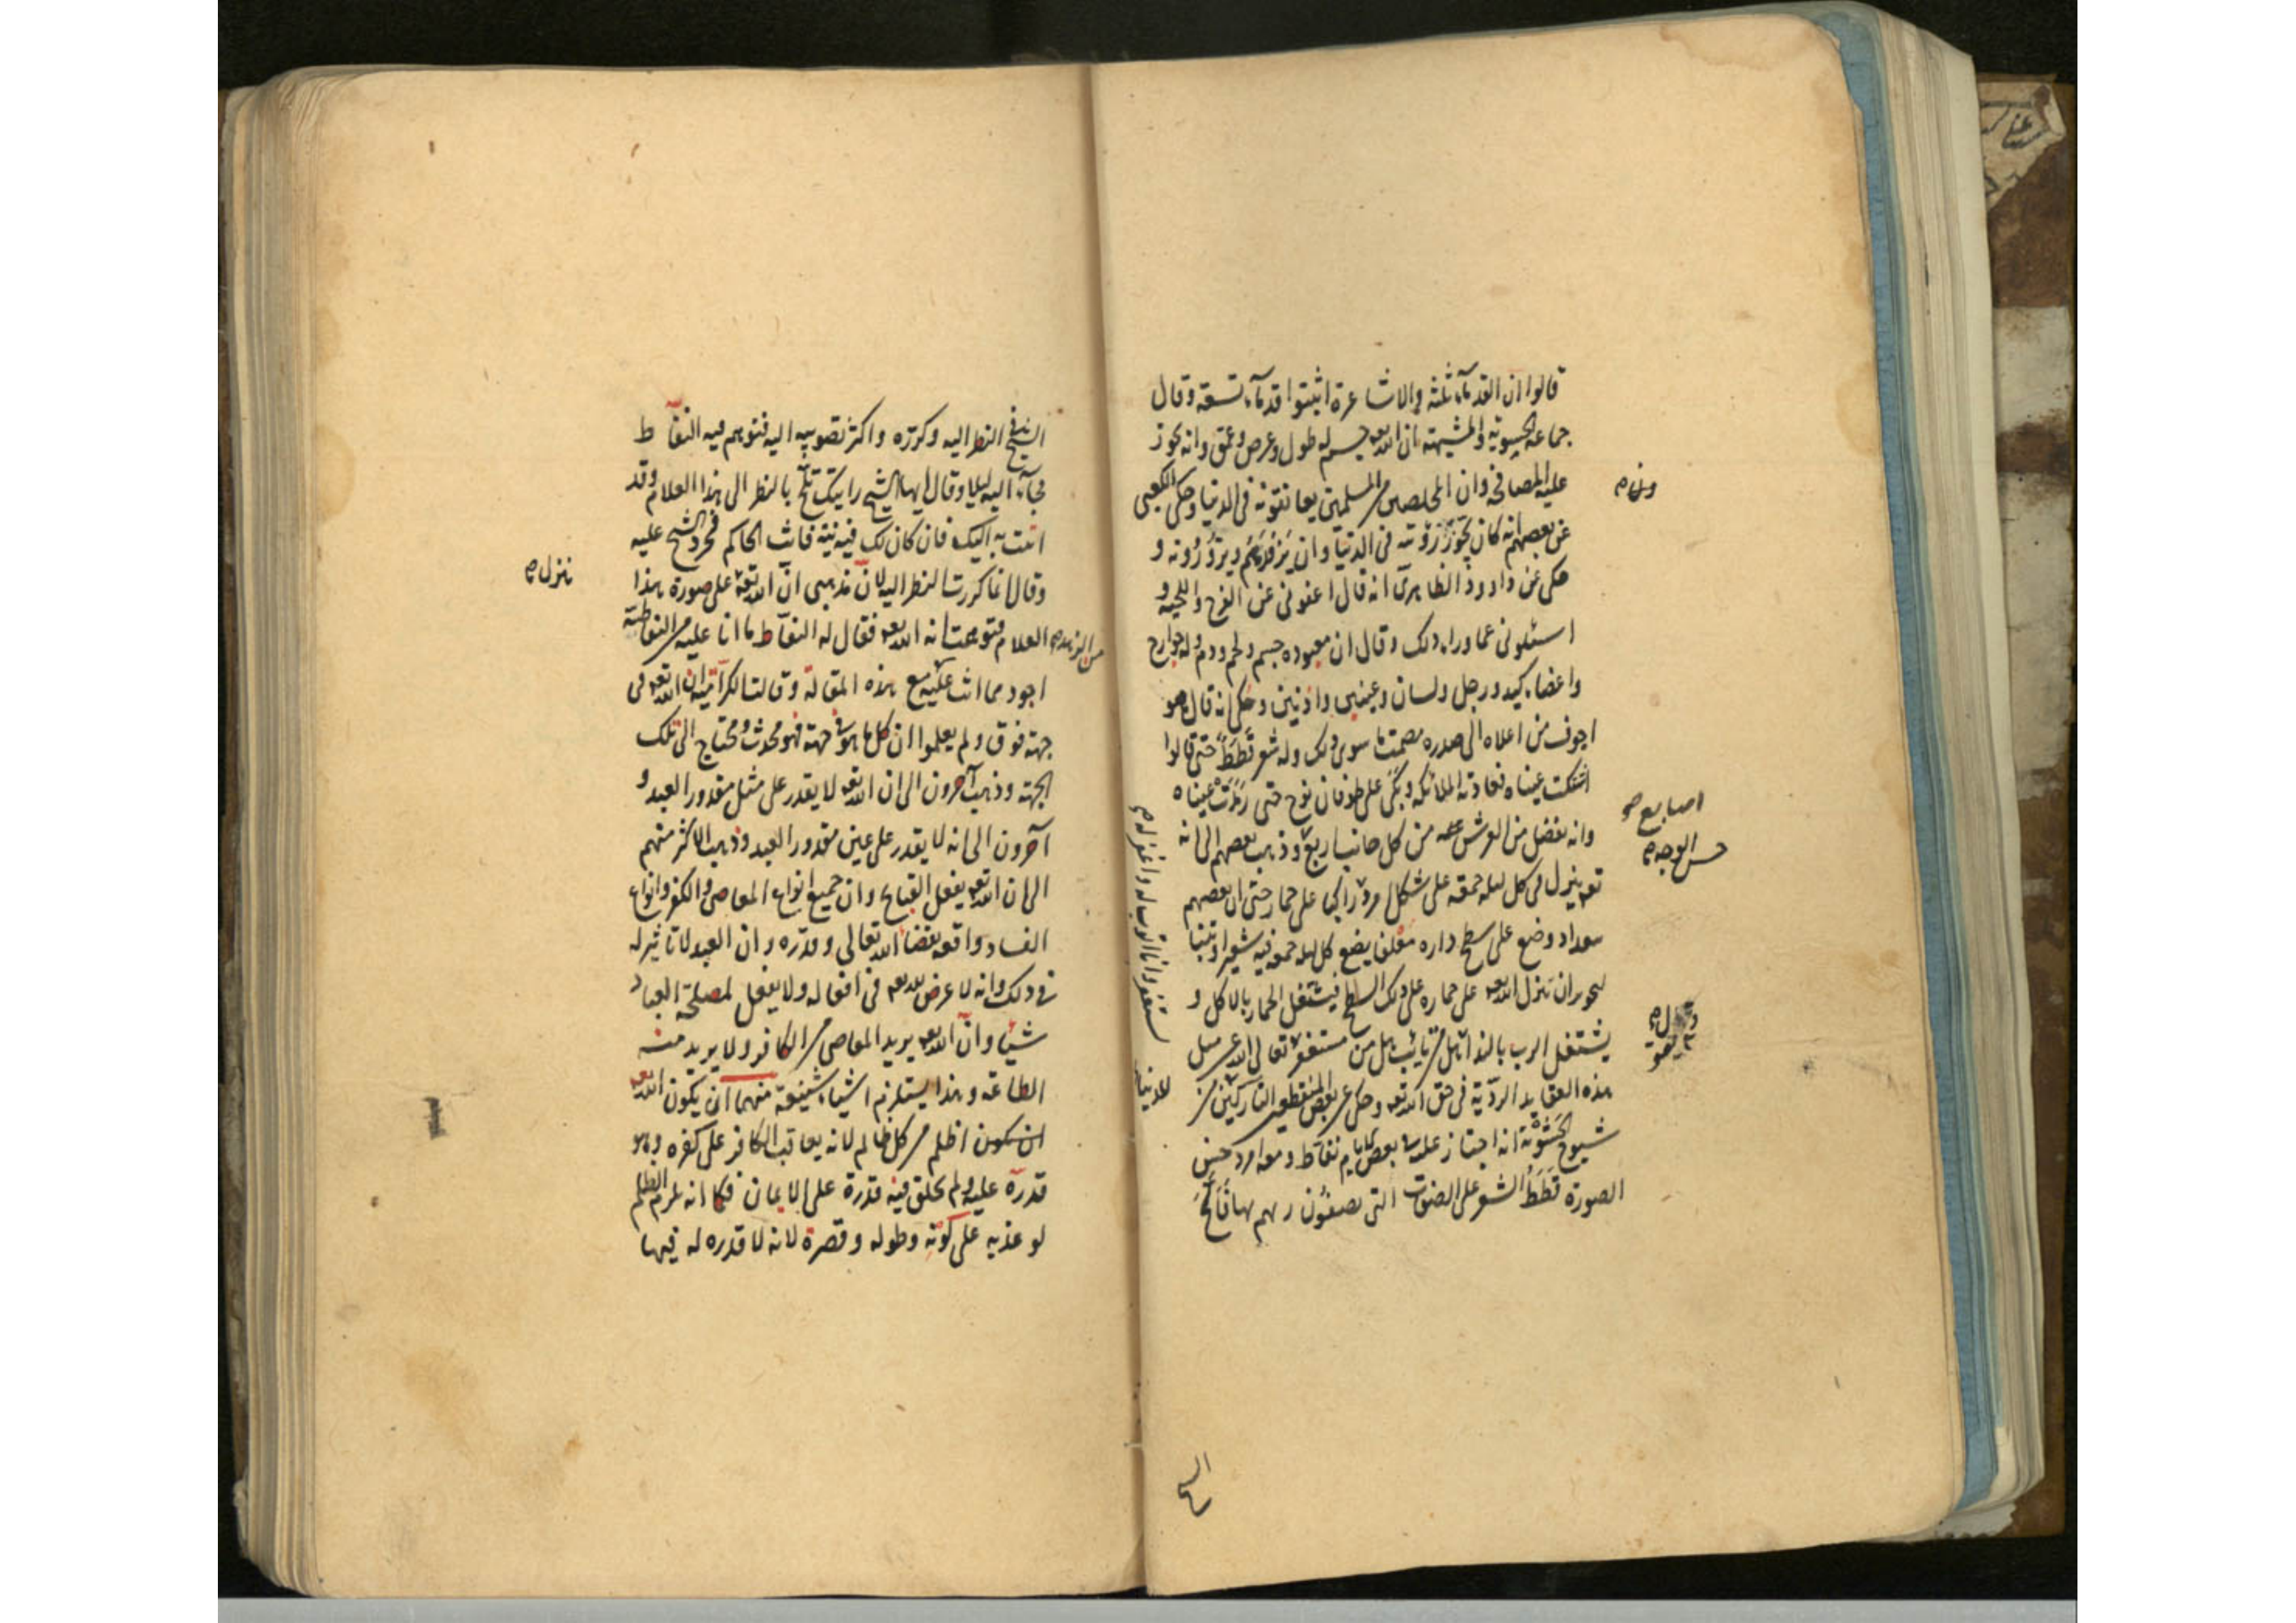 قالوا ان القدماء ثلثة والاشاعرة اثبتوا قدماء تسعة وقال
جماعة الحشوية والمشبهة ان الله تعه جسم له طول وعرض وعمق وانه يجوز
عليه المصافحة وان المخلصين من المسلمين يعانقونه في الدنيا وحكى الكعبي
عن بعضهم انه كان يجوز رؤيته في الدنيا وان يزورهم ويزورونه و
حكى عن داوود الظاهري انه قال اعفوني عن الفرج واللحية و
اسئلوني عما وراء ذلك وقال ان معبوده جسم ولحم ودم وله جوارح
واعضاء كيد ورجل ولسان وعينين واذنين وحكى انه قال هو
اجوف من اعلاه الى صدره مصمت ما سوى ذلك وله شعر قطط حتى قالوا
اشتكت عيناه فعادته الملائكة وبكى على طوفان نوح حتى رمدت عيناه
وانه يفضل من العرش عنه من كل جانب اربع وذهب بعضهم الى انه
تعه ينزل في كل ليلة جمعة على شكل امرد راكبا على حمار حتى ان بعضهم
ببغداد وضع على سطح داره معلفا يضع كل ليلة جمعة فيه شعيرا وتبنا
لتجويز ان ينزل الله تعه على حماره على ذلك السطح فيشتغل الحمار بالاكل و
يشتغل الرب بالنداء هل من تايب هل من مستغفر تعالى الله عن مثل
هذه العقايد الردية في حق الله تعه وحكى عن بعض المنقطعين التاركين من
شيوخ الحشوية انه اجتاز عليه في بعض الايام نفاط ومعه امرد حسن
الصورة قطط الشعر على الصفات التي يصفون ربهم بها فالح
اصابع
حسن الوجه
الشيخ
الشيخ في النظر اليه وكرره واكثر تصويبه اليه فتوهم فيه النفاط
فجاء اليه ليلا وقال ايها الشيخ رايتك تلح بالنظر الى هذا الغلام وقد
اتيت به اليك فان كان لك فيه نية فانت الحاكم فحرد الشيخ عليه
وقال انما كررت النظر اليه لان مذهبي ان الله تعه على صورة هذا
الغلام فتوهمت انه الله تعه فقال له النفاط ما انا عليه من النفاطة
اجود مما انت عليه مع هذه المقالة وقالت الكرامية ان الله تعه في
جهة فوق ولم يعلموا ان كل ما هو في جهة فهو محدث ومحتاج الى تلك
الجهة وذهب آخرون الى ان الله تعه لا يقدر على مثل مقدور العبد و
آخرون الى انه لا يقدر على عين مقدور العبد وذهب الاكثر منهم
الى ان الله تعه يفعل القبايح وان جميع انواع المعاصي والكفر وانواع
الفساد واقعة بقضاء الله تعالى وقدره وان العبد لا تاثير له
في ذلك وانه لا غرض لله تعه في افعاله ولا يفعل لمصلحة العباد
شيئا وان الله تعه يريد المعاصي من الكافر ولا يريد منه
الطاعة وهذا يستلزم اشياء شنيعة منها ان يكون الله تعه
ان يكون اظلم من كل ظالم لانه يعاقب الكافر على كفره وهو
قدره عليه ولم يخلق فيه قدرة على الايمان فكما انه يلزم الظلم
لو عذبه على لونه وطوله وقصره لانه لا قدرة له فيها
ينزل
من الزهد